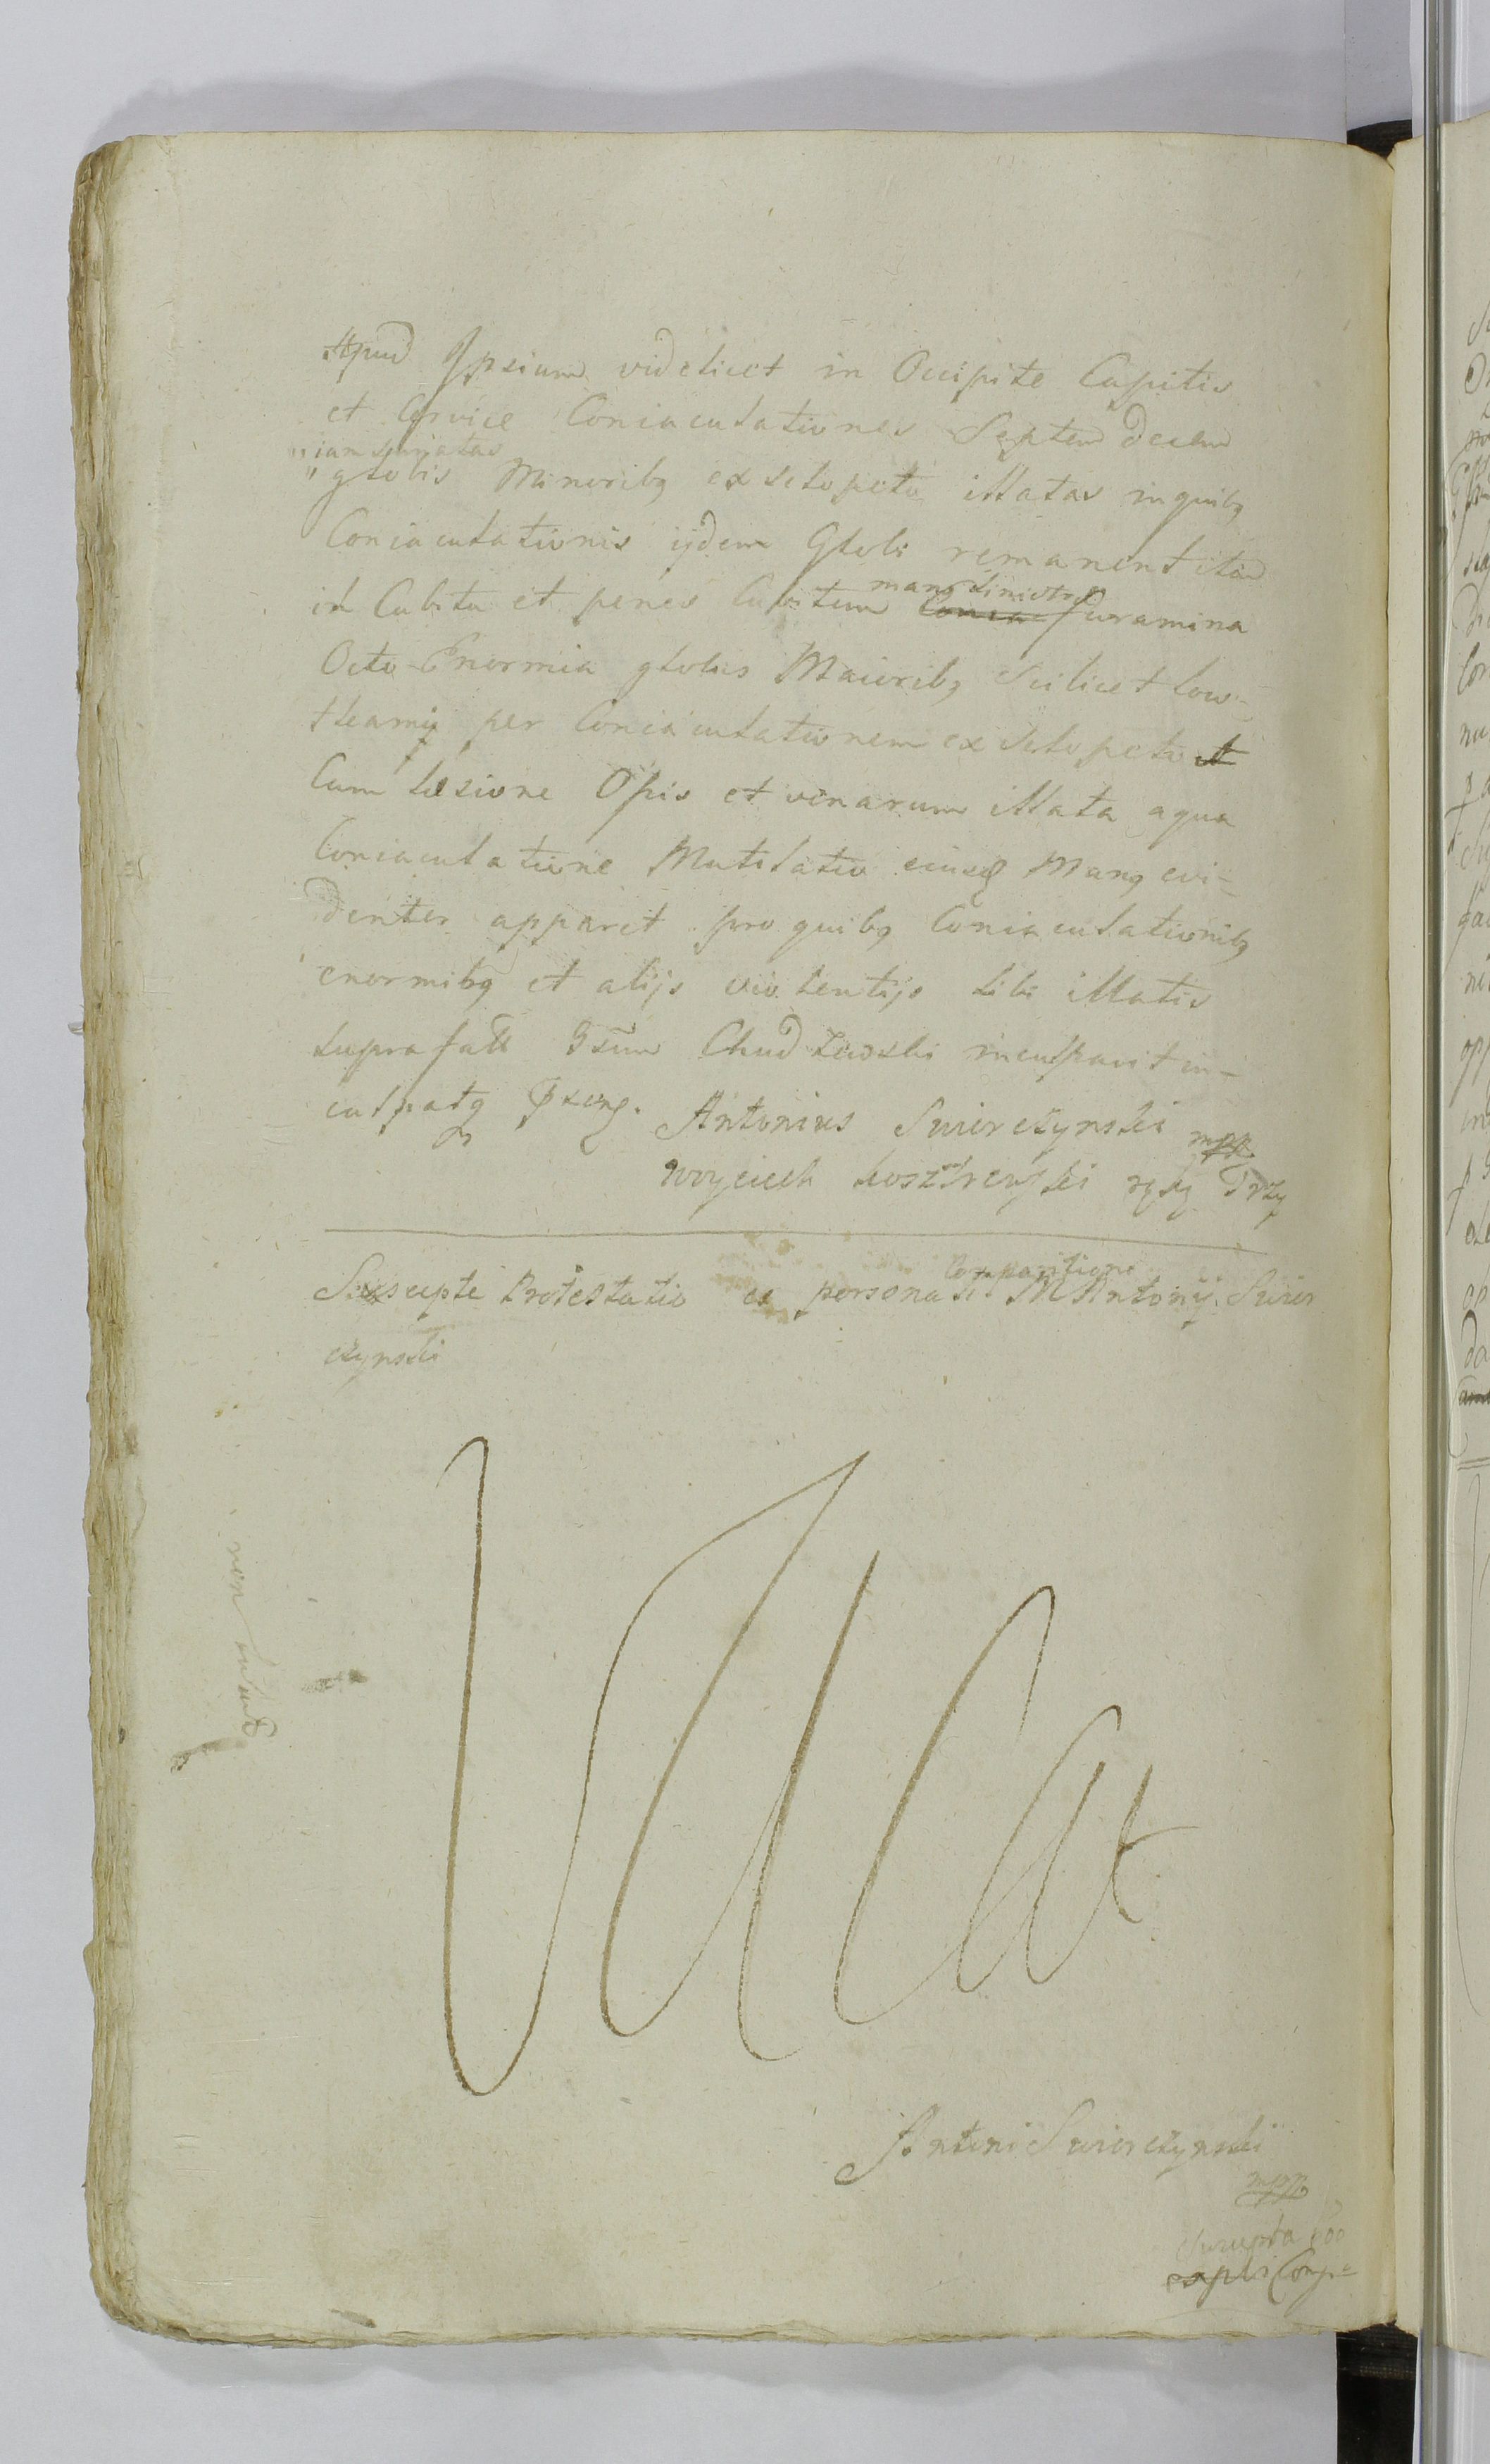 Apud Ipsium videlicet in Occipite Capitis
et Cervice Coniaculationes Septem decem
iam
globis Minoribq ex sclopeto illatas in quibq
Coniaculationis ijdem Globi remanent item
in Cubitu et penes Cubitum manq sinistrae Conia foramina
Octo Enormia globis Maioribq Scilicet low=
tkamij per Coniaculationem ex sclopeto et
Cum laesione Ossis et venarum illata a qua
Coniaculatione Mutilatio eiusd Manq evi=
denter apparet pro quibq Coniaculationibq
enormibq et alijs violentijs sibi illatis
supra fatt Gsum Chudzewski inculpavit in=
culpatq
Antonius Swierczynski mpp
Woyciech ręką Trzy
Suscepta Protestatio ex persona et Comparitione M Antonij Swier
czynski
Vacat
non
Antoni Swierczynski
mpp
Suscepta